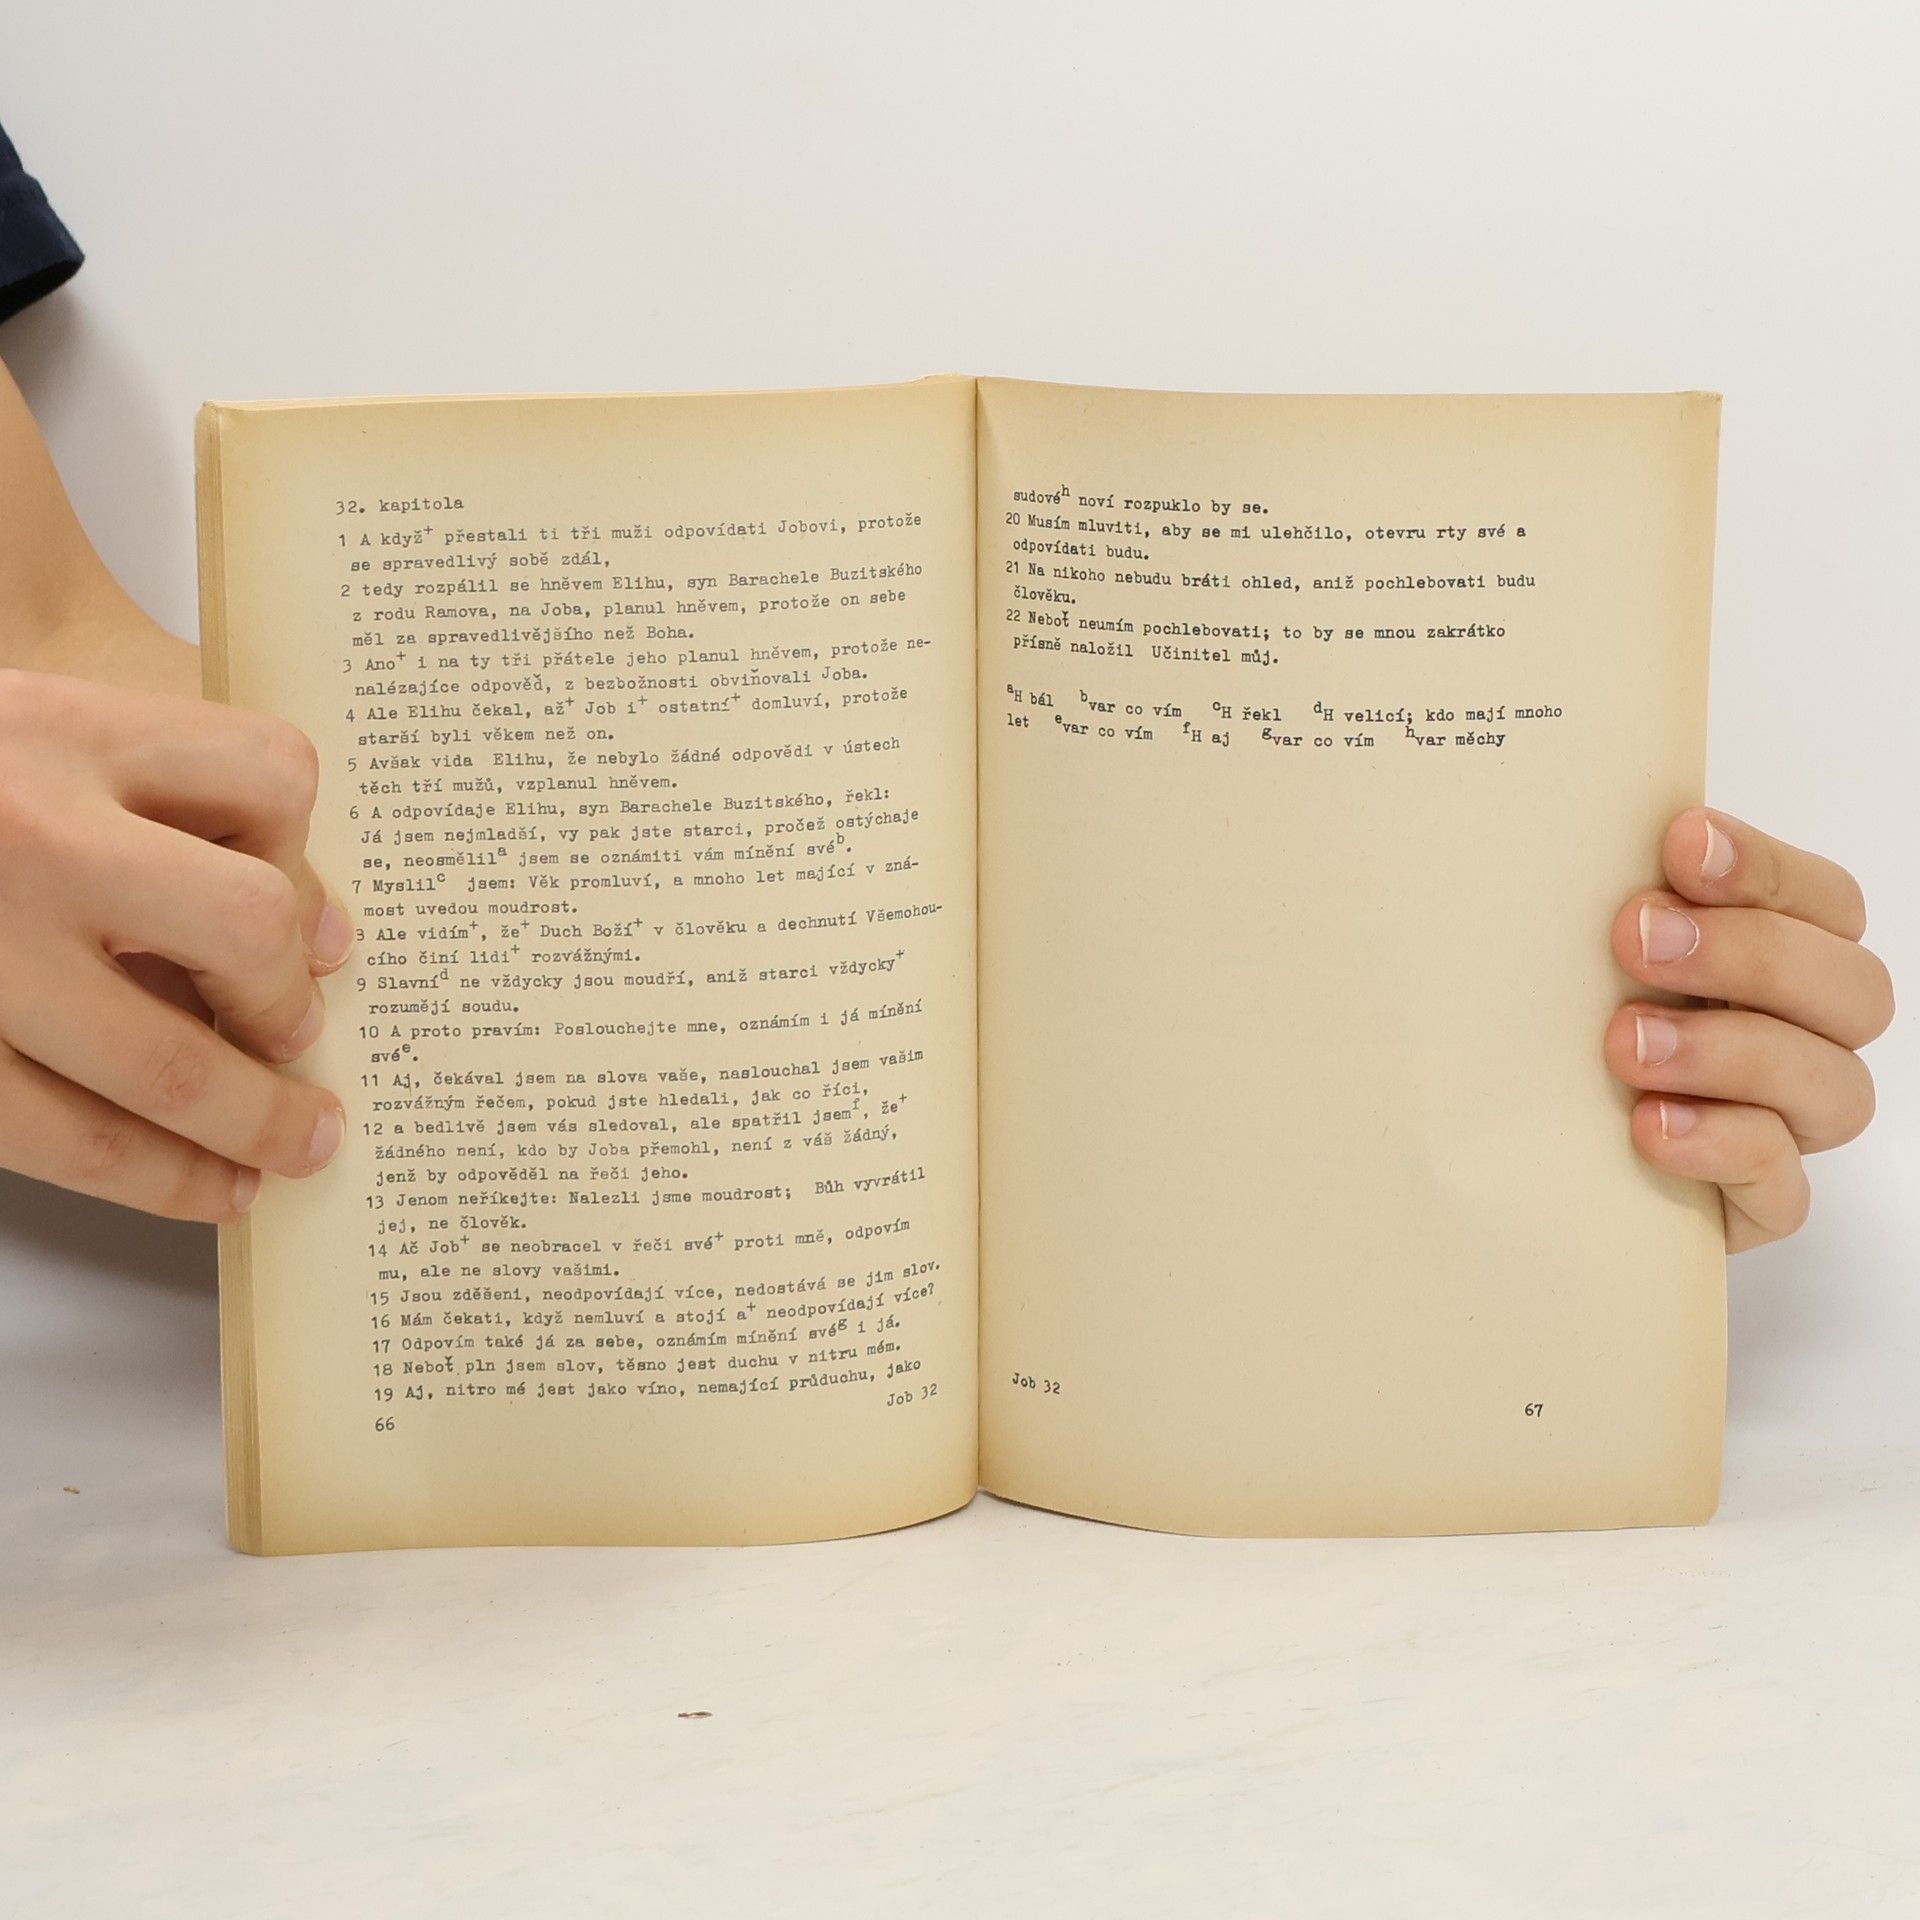 32. kapitola
1 A když+ přestali ti tři muži odpovídati Jobovi, protože
se spravedlivý sobě zdál,
2 tedy rozpálil se hněvem Elihu, syn Barachele Buzitského
z rodu Ramova, na Joba, planul hněvem, protože on sebe
měl za spravedlivějšího než Boha.
3 Ano+ i na ty tři přátele jeho planul hněvem, protože ne-
nalézajíce odpověď, z bezbožnosti obviňovali Joba.
4 Ale Elihu čekal, až+ Job i+ ostatní+ domluví, protože
starší byli věkem než on.
5 Avšak vida Elihu, že nebylo žádné odpovědi v ústech
těch tří mužů, vzplanul hněvem.
6 A odpovídaje Elihu, syn Barachele Buzitského, řekl:
Já jsem nejmladší, vy pak jste starci, pročež ostýchaje
se, neosmělil^a jsem se oznámiti vám mínění své^b.
7 Myslil^c jsem: Věk promluví, a mnoho let mající v zná-
most uvedou moudrost.
8 Ale vidím+, že+ Duch Boží+ v člověku a dechnutí Všemohou-
cího činí lidi+ rozvážnými.
9 Slavní^d ne vždycky jsou moudří, aniž starci vždycky+
rozumějí soudu.
10 A proto pravím: Poslouchejte mne, oznámím i já mínění
své^e.
11 Aj, čekával jsem na slova vaše, naslouchal jsem vašim
rozvážným řečem, pokud jste hledali, jak co říci,
12 a bedlivě jsem vás sledoval, ale spatřil jsem^f, že+
žádného není, kdo by Joba přemohl, není z váš žádný,
jenž by odpověděl na řeči jeho.
13 Jenom neříkejte: Nalezli jsme moudrost; Bůh vyvrátil
jej, ne člověk.
14 Ač Job+ se neobracel v řeči své+ proti mně, odpovím
mu, ale ne slovy vašimi.
15 Jsou zděšeni, neodpovídají více, nedostává se jim slov.
16 Mám čekati, když nemluví a stojí a+ neodpovídají více?
17 Odpovím také já za sebe, oznámím mínění své^g i já.
18 Neboť pln jsem slov, těsno jest duchu v nitru mém.
19 Aj, nitro mé jest jako víno, nemající průduchu, jako
Job 32
66
sudové^h noví rozpuklo by se.
20 Musím mluviti, aby se mi ulehčilo, otevru rty své a
odpovídati budu.
21 Na nikoho nebudu bráti ohled, aniž pochlebovati budu
člověku.
22 Neboť neumím pochlebovati; to by se mnou zakrátko
přísně naložil Učinitel můj.
^aH bál ^bvar co vím ^cH řekl ^dH velicí; kdo mají mnoho
let ^evar co vím ^fH aj ^gvar co vím ^hvar měchy
Job 32
67